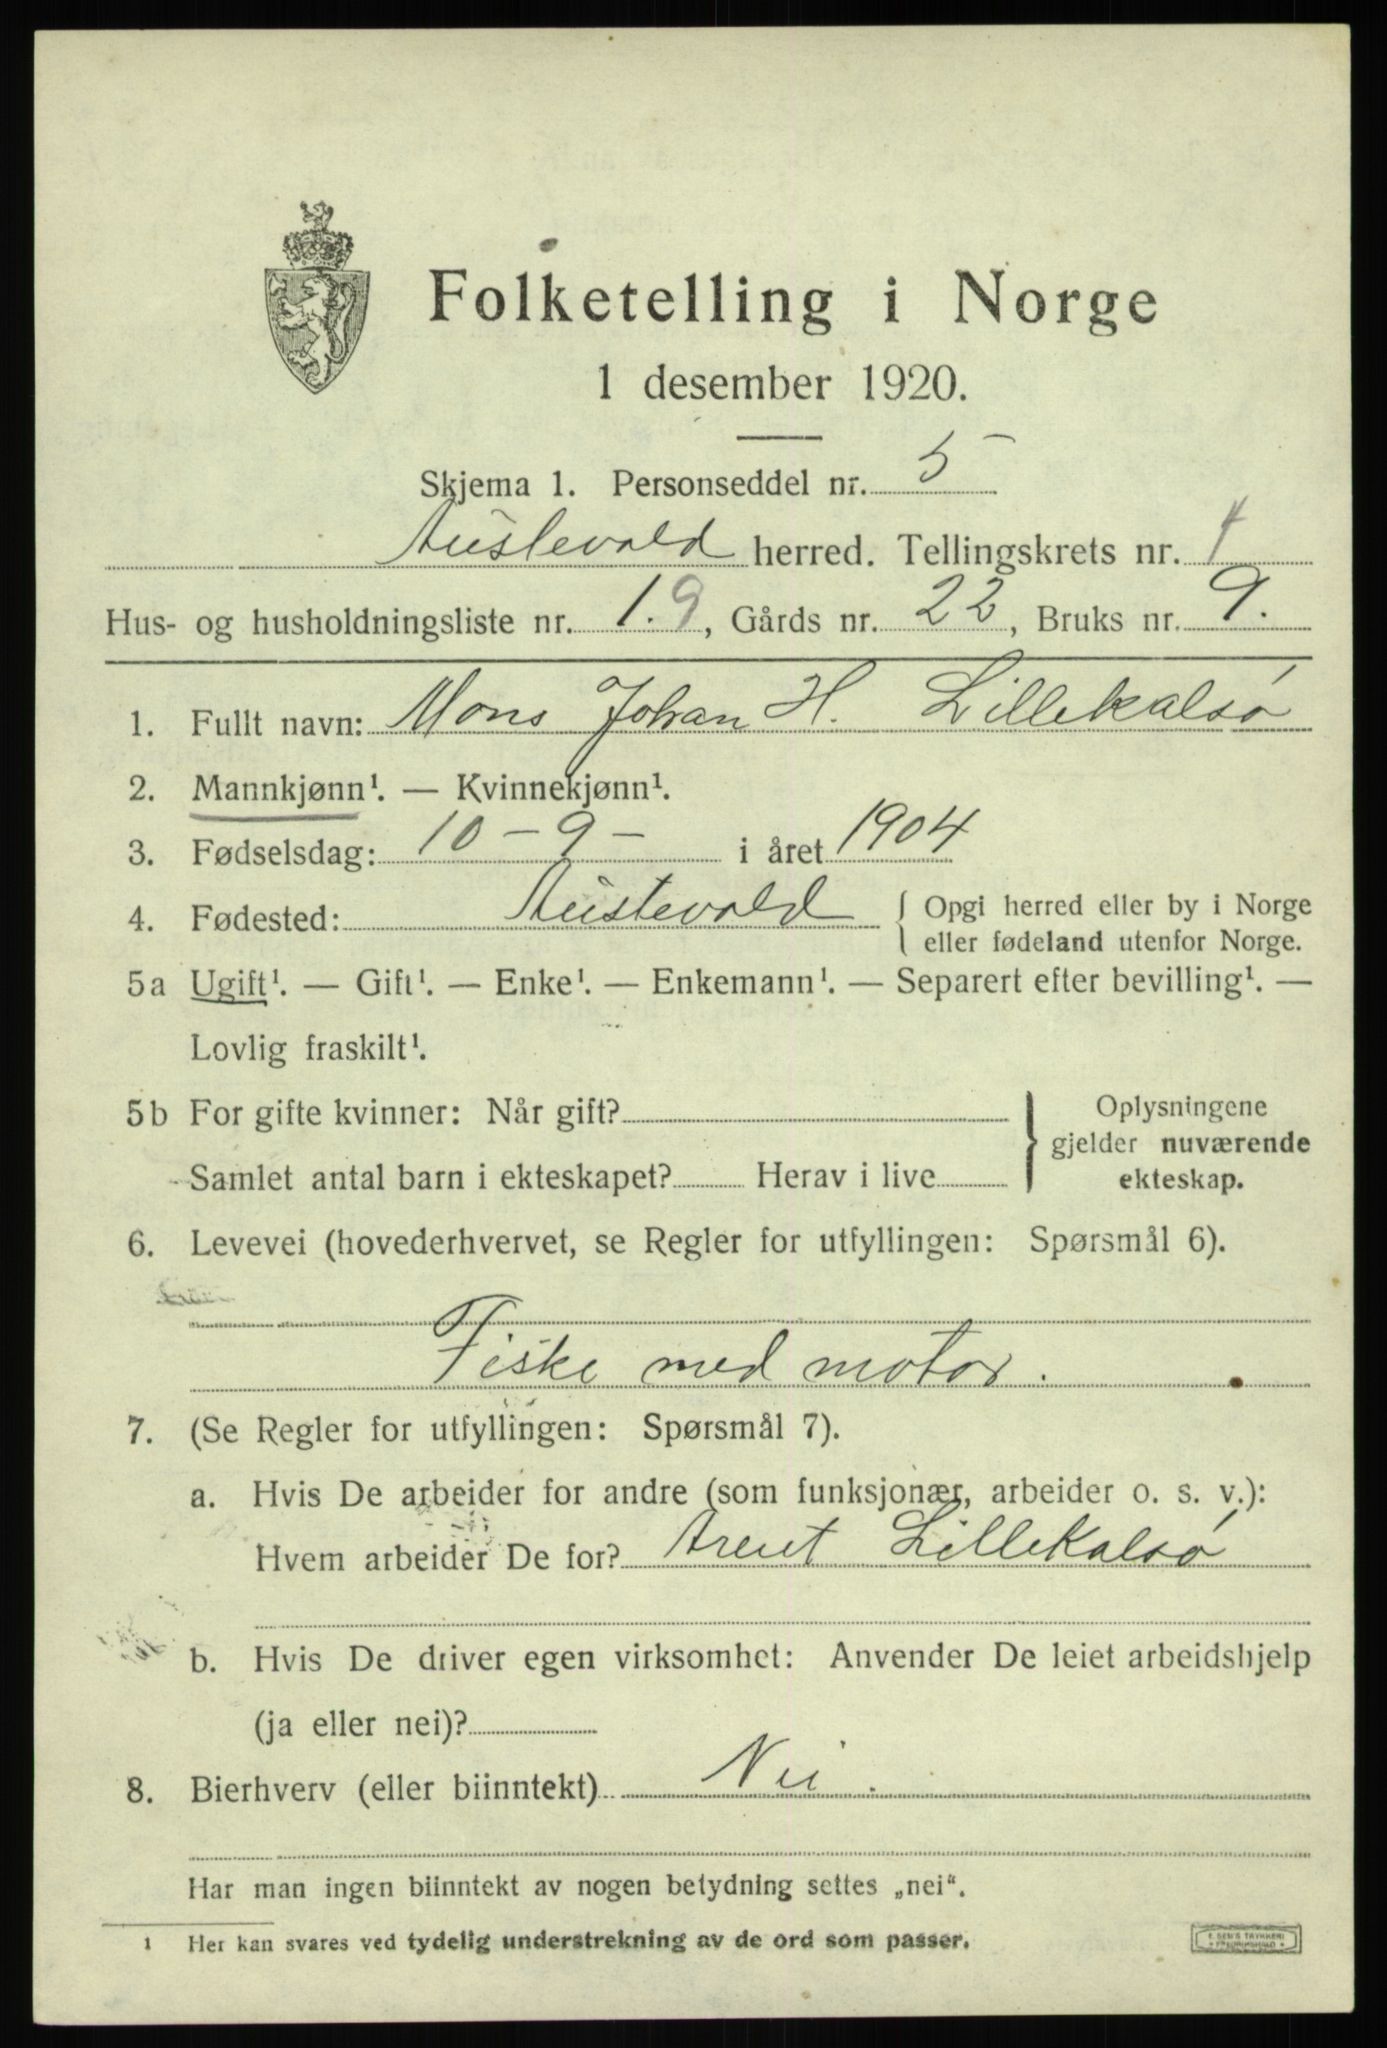 Folketelling i Norge
1 desember 1920.
Skjema 1. Personseddel nr. 5
Austevold herred. Tellingskrets nr. 4
Hus- og husholdningsliste nr. 19, Gårds nr. 22, Bruks nr. 9.
1. Fullt navn: Mons Johan H. Lillekalsø
2. Mannkjønn¹. — Kvinnekjønn¹.
3. Fødselsdag: 10 - 9 - i året 1904
4. Fødested: Austevold { Opgi herred eller by i Norge
eller fødeland utenfor Norge.
5a Ugift¹. — Gift¹. — Enke¹. — Enkemann¹. — Separert efter bevilling¹. —
Lovlig fraskilt¹.
5b For gifte kvinner: Når gift? } Oplysningene
gjelder nuværende
Samlet antal barn i ekteskapet? Herav i live ekteskap.
6. Levevei (hovederhvervet, se Regler for utfyllingen: Spørsmål 6).
Fiske med motor.
7. (Se Regler for utfyllingen: Spørsmål 7).
a. Hvis De arbeider for andre (som funksjonær, arbeider o. s. v.):
Hvem arbeider De for? Arent Lillekalsø
b. Hvis De driver egen virksomhet: Anvender De leiet arbeidshjelp
(ja eller nei)?
8. Bierhverv (eller biinntekt) Nei.
Har man ingen biinntekt av nogen betydning settes „nei“.
1 Her kan svares ved tydelig understrekning av de ord som passer.
E. SEM'S TRYKKERI
FREDRIKSHALD